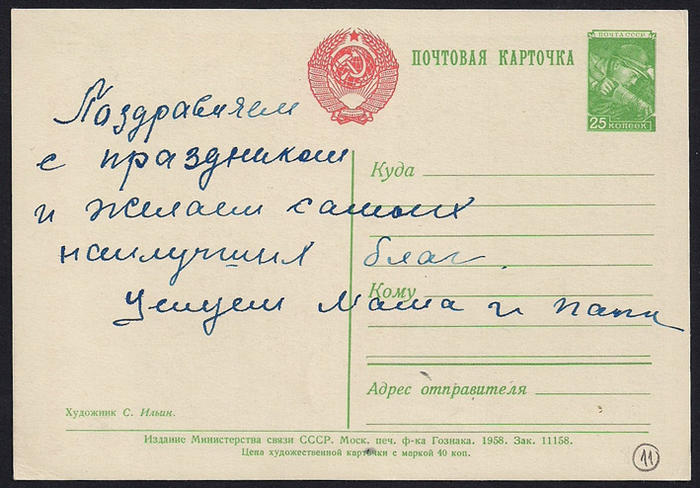 ПОЧТА СССР
25 КОПЕЕК
ПОЧТОВАЯ КАРТОЧКА
Поздравляем
с праздником
и желаем самых
наилучших благ.
Целуем Мама и папа
Куда
Кому
Адрес отправителя
Художник С. Ильин.
Издание Министерства связи СССР. Моск. печ. ф-ка Гознака. 1958. Зак. 11158.
Цена художественной карточки с маркой 40 коп.
11